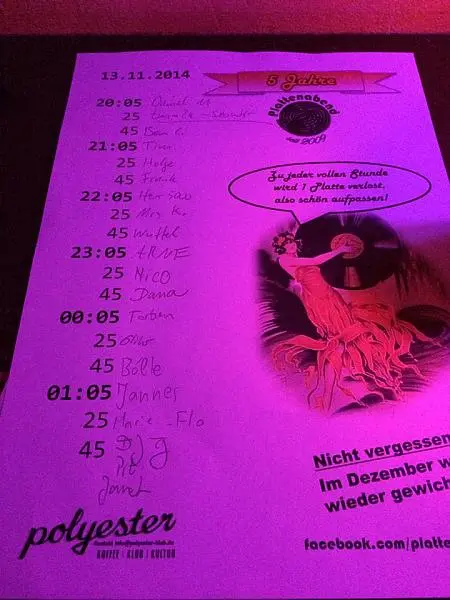 13.11.2014
5 Jahre
Plattenabend
seit 2009
20:05
25
45 Ben
21:05 Tim
25 Holge
45 Frank
22:05 Herr
25 Mrs K.
45 Wuffel
23:05 ARNE
25 Nico
45 Dana
00:05 Torben
25
45 Bölle
01:05 Jannes
25 Marie - Flo
45 DJ J
Pit
Zu jeder vollen Stunde
wird 1 Platte verlost,
also schön aufpassen!
Nicht vergessen
Im Dezember w
wieder gewich
polyester
Kontakt info@polyester-klub.de
KOFFEE | KLUB | KULTUR
facebook.com/platte